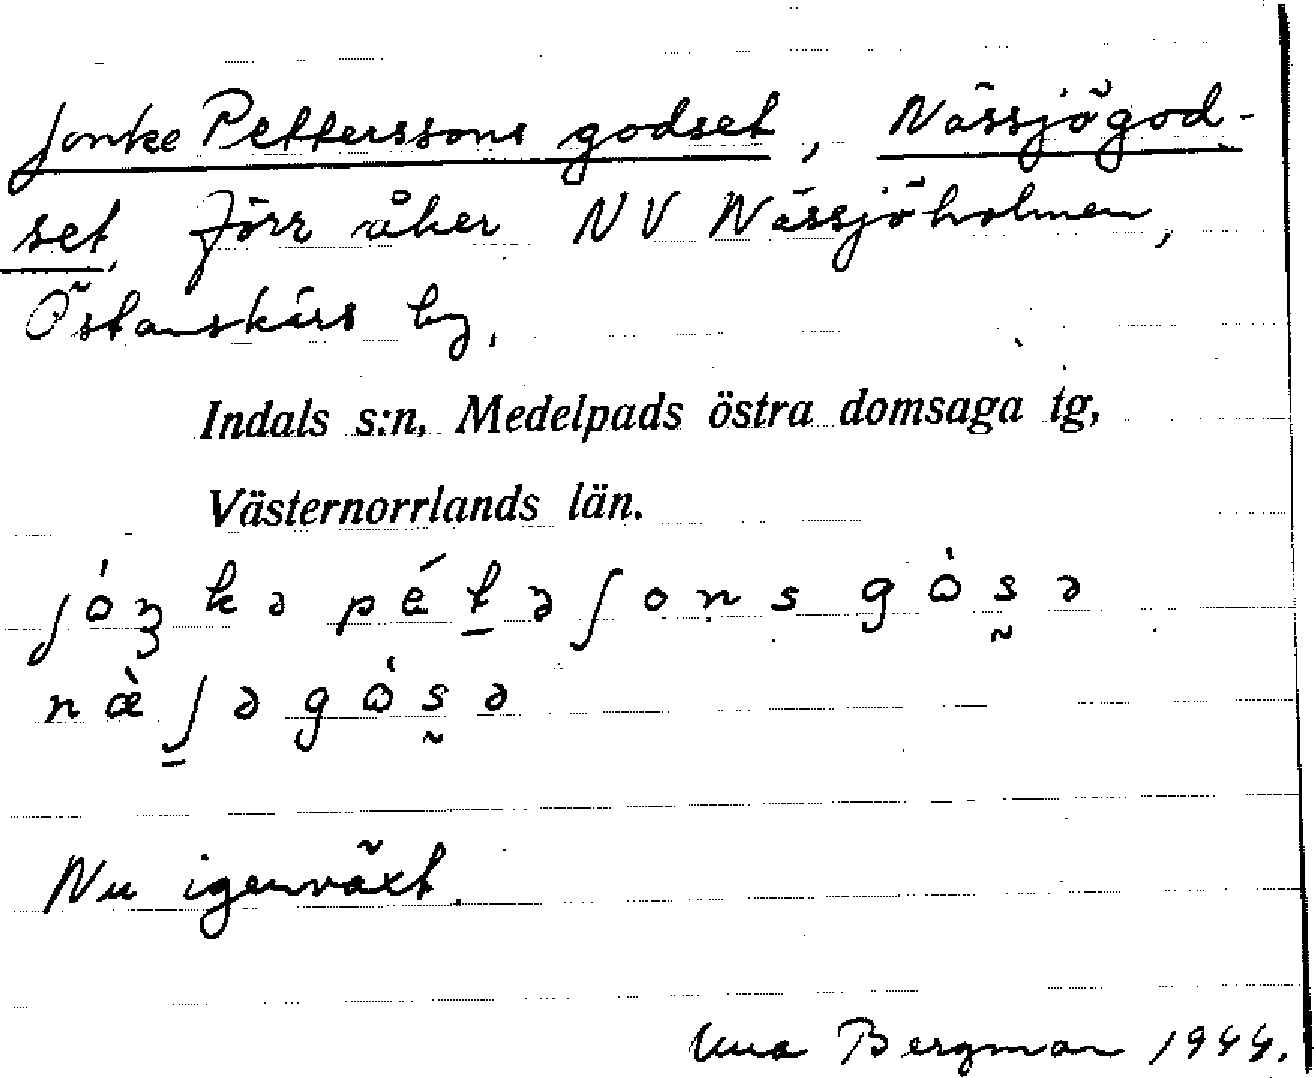 Jonke Petterssons godset, Nässjögod-
set, förr åker NV Nässjöholmen,
Östanskärs by,
Indals s:n, Medelpads östra domsaga tg,
Västernorrlands län.
Nu igenväxt.
Bergman 1944.